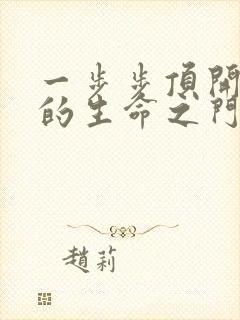 一步步頂開
的生命之門
趙莉